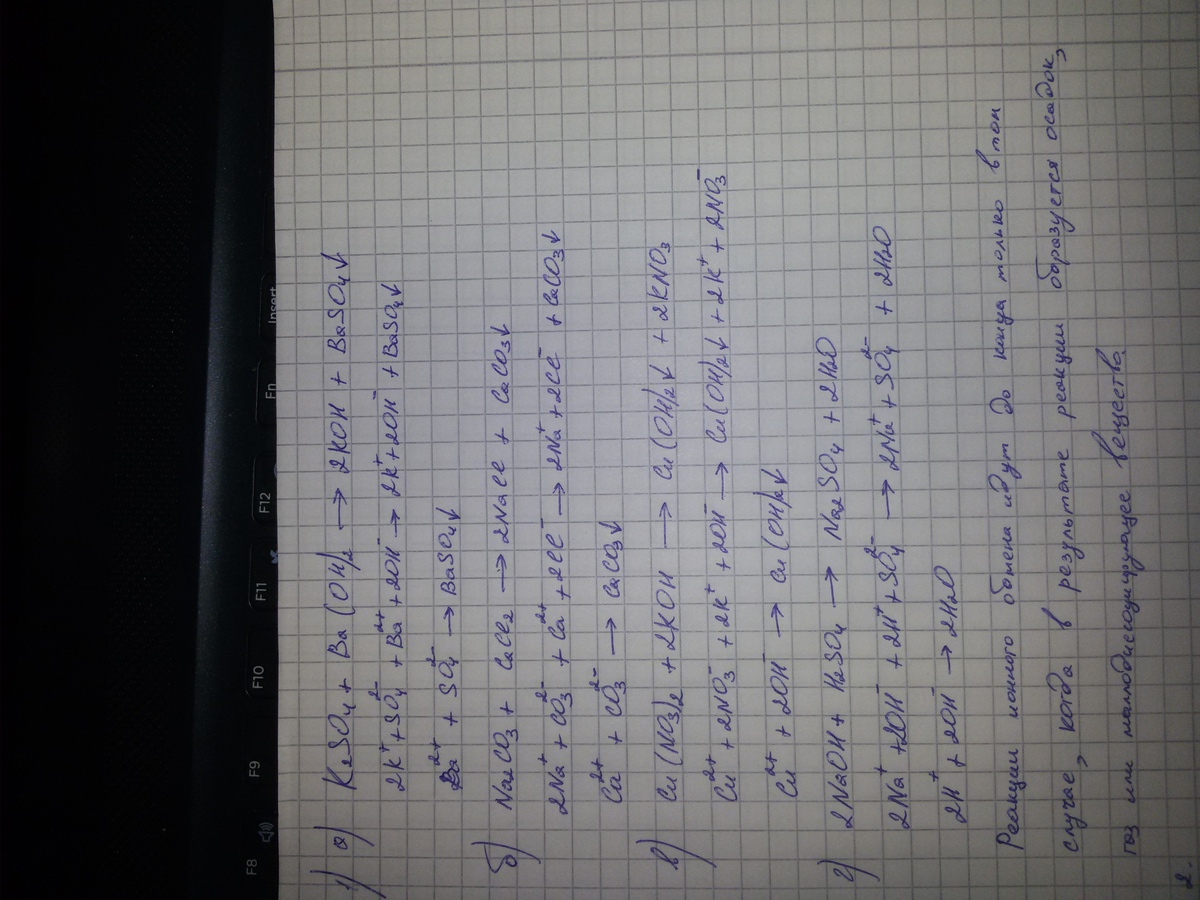 1) а) K2SO4 + Ba(OH)2 → 2KOH + BaSO4↓
2K⁺ + SO4²⁻ + Ba²⁺ + 2OH⁻ → 2K⁺ + 2OH⁻ + BaSO4↓
Ba²⁺ + SO4²⁻ → BaSO4↓
б) Na2CO3 + CaCl2 → 2NaCl + CaCO3↓
2Na⁺ + CO3²⁻ + Ca²⁺ + 2Cl⁻ → 2Na⁺ + 2Cl⁻ + CaCO3↓
Ca²⁺ + CO3²⁻ → CaCO3↓
в) Cu(NO3)2 + 2KOH → Cu(OH)2↓ + 2KNO3
Cu²⁺ + 2NO3⁻ + 2K⁺ + 2OH⁻ → Cu(OH)2↓ + 2K⁺ + 2NO3⁻
Cu²⁺ + 2OH⁻ → Cu(OH)2↓
г) 2NaOH + H2SO4 → Na2SO4 + 2H2O
2Na⁺ + 2OH⁻ + 2H⁺ + SO4²⁻ → 2Na⁺ + SO4²⁻ + 2H2O
2H⁺ + 2OH⁻ → 2H2O
Реакции ионного обмена идут до конца только в том
случае, когда в результате реакции образуется осадок,
газ или малодиссоциирующее вещества
2.
F8
F9
F10
F11
F12
Fn
Insert